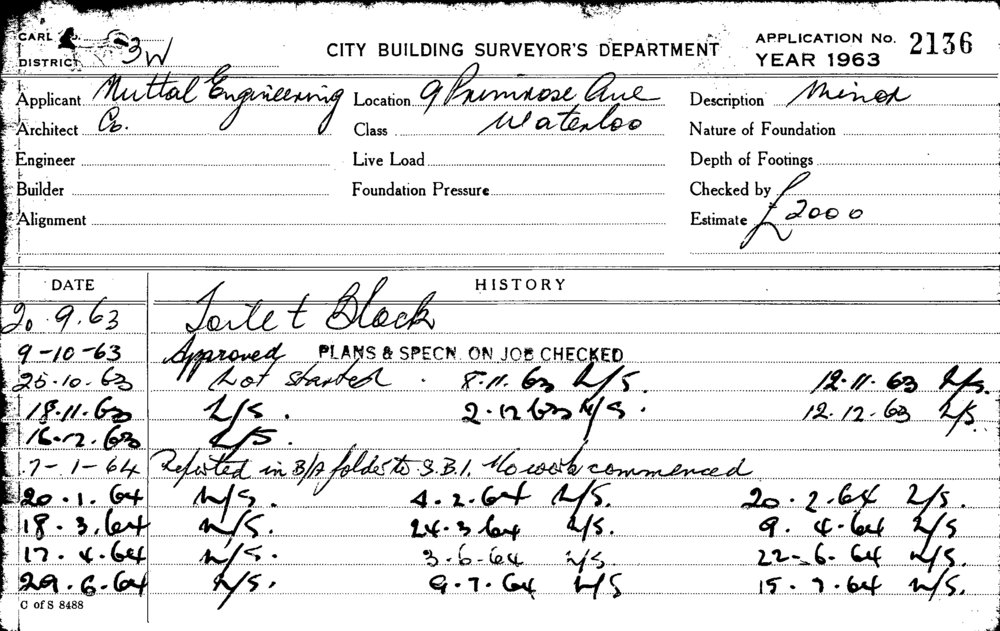 CARL
DISTRICT 3W
CITY BUILDING SURVEYOR'S DEPARTMENT
APPLICATION No. 2136
YEAR 1963
Applicant Nuttal Engineering Location 9 Primrose Ave Description Minor
Architect Co. Class Waterloo Nature of Foundation
Engineer Live Load Depth of Footings
Builder Foundation Pressure Checked by
Alignment Estimate £2000
DATE HISTORY
20.9.63 Toilet Block
9-10-63 Approved PLANS & SPECN. ON JOB CHECKED
25.10.63 Not started. 8.11.63 N/S. 12.11.63 N/S.
18.11.63 N/S. 2.12.63 N/S. 12.12.63 N/S
16.12.63 N/S.
7-1-64 Reported in B/A folder to S.B.I. No work commenced
20.1.64 N/S. 4.2.64 N/S. 20.2.64 N/S.
18.3.64 N/S. 24.3.64 N/S. 9.4.64 N/S
17.4.64 N/S. 3-6-64 N/S 22-6.64 N/S.
29.6.64 N/S. 9.7.64 N/S 15.7.64 N/S.
C of S 8488